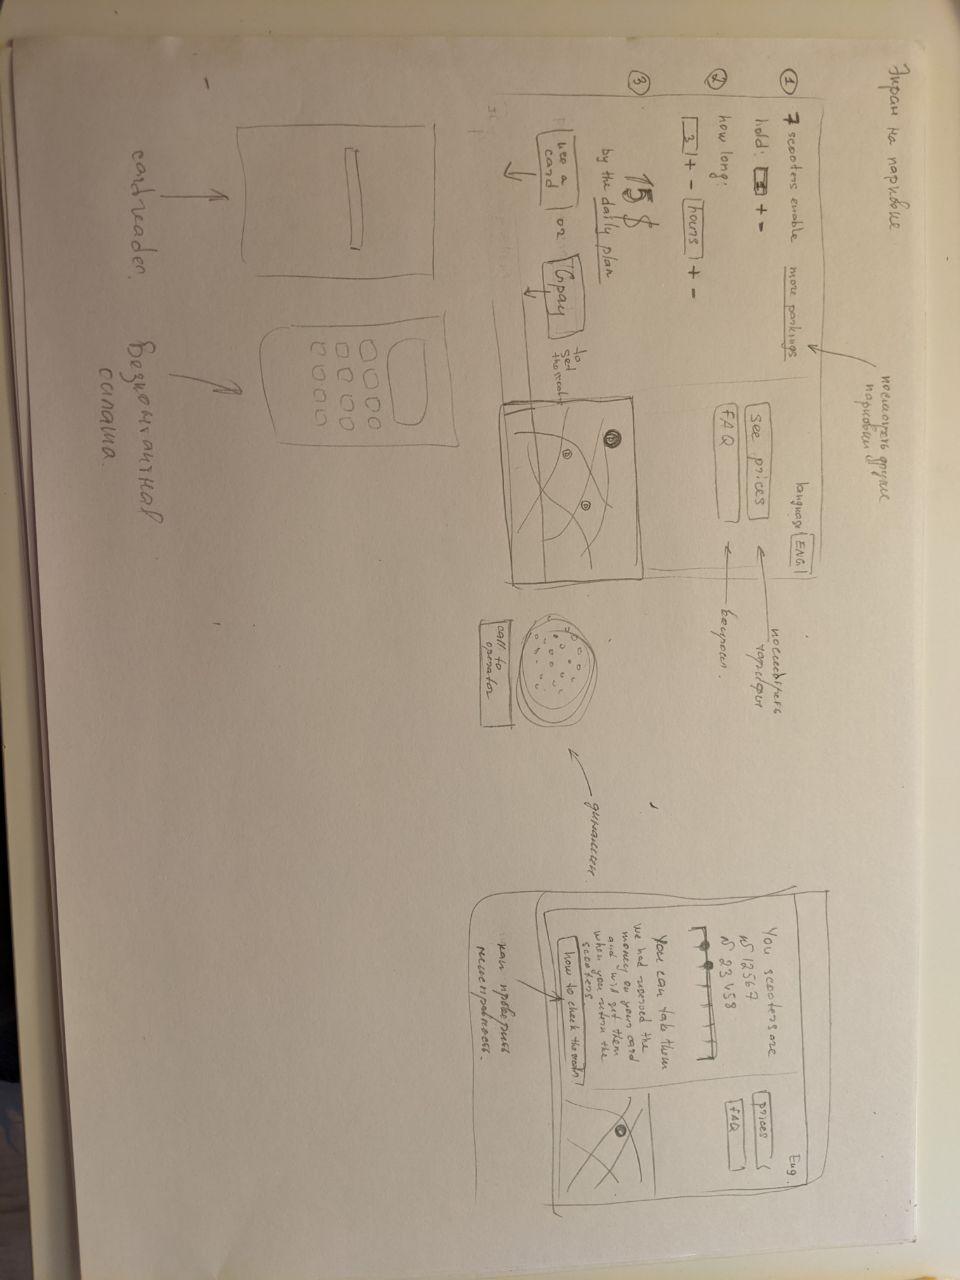 Экран на парковке
посмотреть другие
парковки
1
7 scooters enable more parkings
hold: 1 + -
2
how long:
3 + - hours + -
3
15 $
by the daily plan
use a
card
or
Gpay
to
get
language ENG
see prices
FAQ
посмотреть
тарифы
вопросы.
динамик
call to
operator
cardreader.
Безконтактная
оплата.
Eng.
You scooters are
№ 12567
№ 23458
You can take them
we had reserved the
money on your card
and will get them
when you return the
scooters.
how to check the
prices
FAQ
как проверить
неисправность.